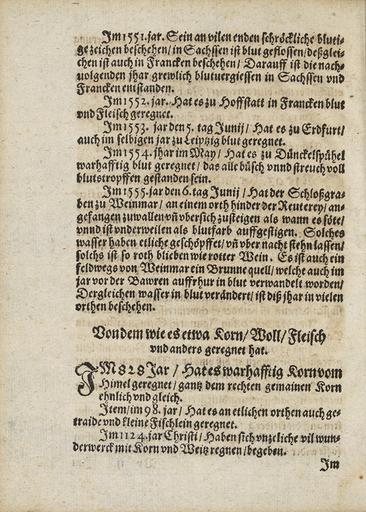 Im 1551. jar. Sein an vilen enden schröckliche bluti-
ge zeichen beschehen/ in Sachssen ist blut geflossen/ deßglei-
chen ist auch in Francken beschehen/ Darauff ist die nach-
uolgenden jhar grewlich blutuergiessen in Sachssen vnd
Francken entstanden.
Im 1552. jar. Hat es zu Hoffstatt in Francken blut
vnd Fleisch geregnet.
Im 1553. jar den 5. tag Junij/ Hat es zu Erdfurt/
auch im selbigen jar zu Leiptzig blut geregnet.
Im 1554. jhar im May/ Hat es zu Dünckelspühel
warhafftig blut geregnet/ das alle büsch vnnd streuch voll
blutstropffen gestanden sein.
Im 1555. jar den 6. tag Junij/ Hat der Schloßgra-
ben zu Weinmar/ an einem orth hinder der Reuterey/ an-
gefangen zu wallen vñ vbersich zusteigen als wann es söte/
vnnd ist vnderweilen als blutfarb auffgestigen. Solches
wasser haben etliche geschöpffet/ vñ vber nacht stehn lassen/
solchs ist so roth blieben wie rotter Wein. Es ist auch ein
feldwegs von Weinmar ein Brunnequell/ welche auch im
jar vor der Bawren auffrhur in blut verwandelt worden/
Dergleichen wasser in blut verändert/ ist diß jhar in vielen
orthen beschehen.
Von dem wie es etwa Korn/ Woll/ Fleisch
vnd anders geregnet hat.
IM 828 Jar/ Hat es warhafftig Korn vom
Himel geregnet/ gantz dem rechten gemainen Korn
ehnlich vnd gleich.
Item/ im 98. jar/ Hat es an etlichen orthen auch ge-
traide vnd kleine Fischlein geregnet.
Im 1124. jar Christi/ Haben sich vnzeliche vil wun-
derwerck mit Korn vnd Weitz regnen/ begeben.
Im